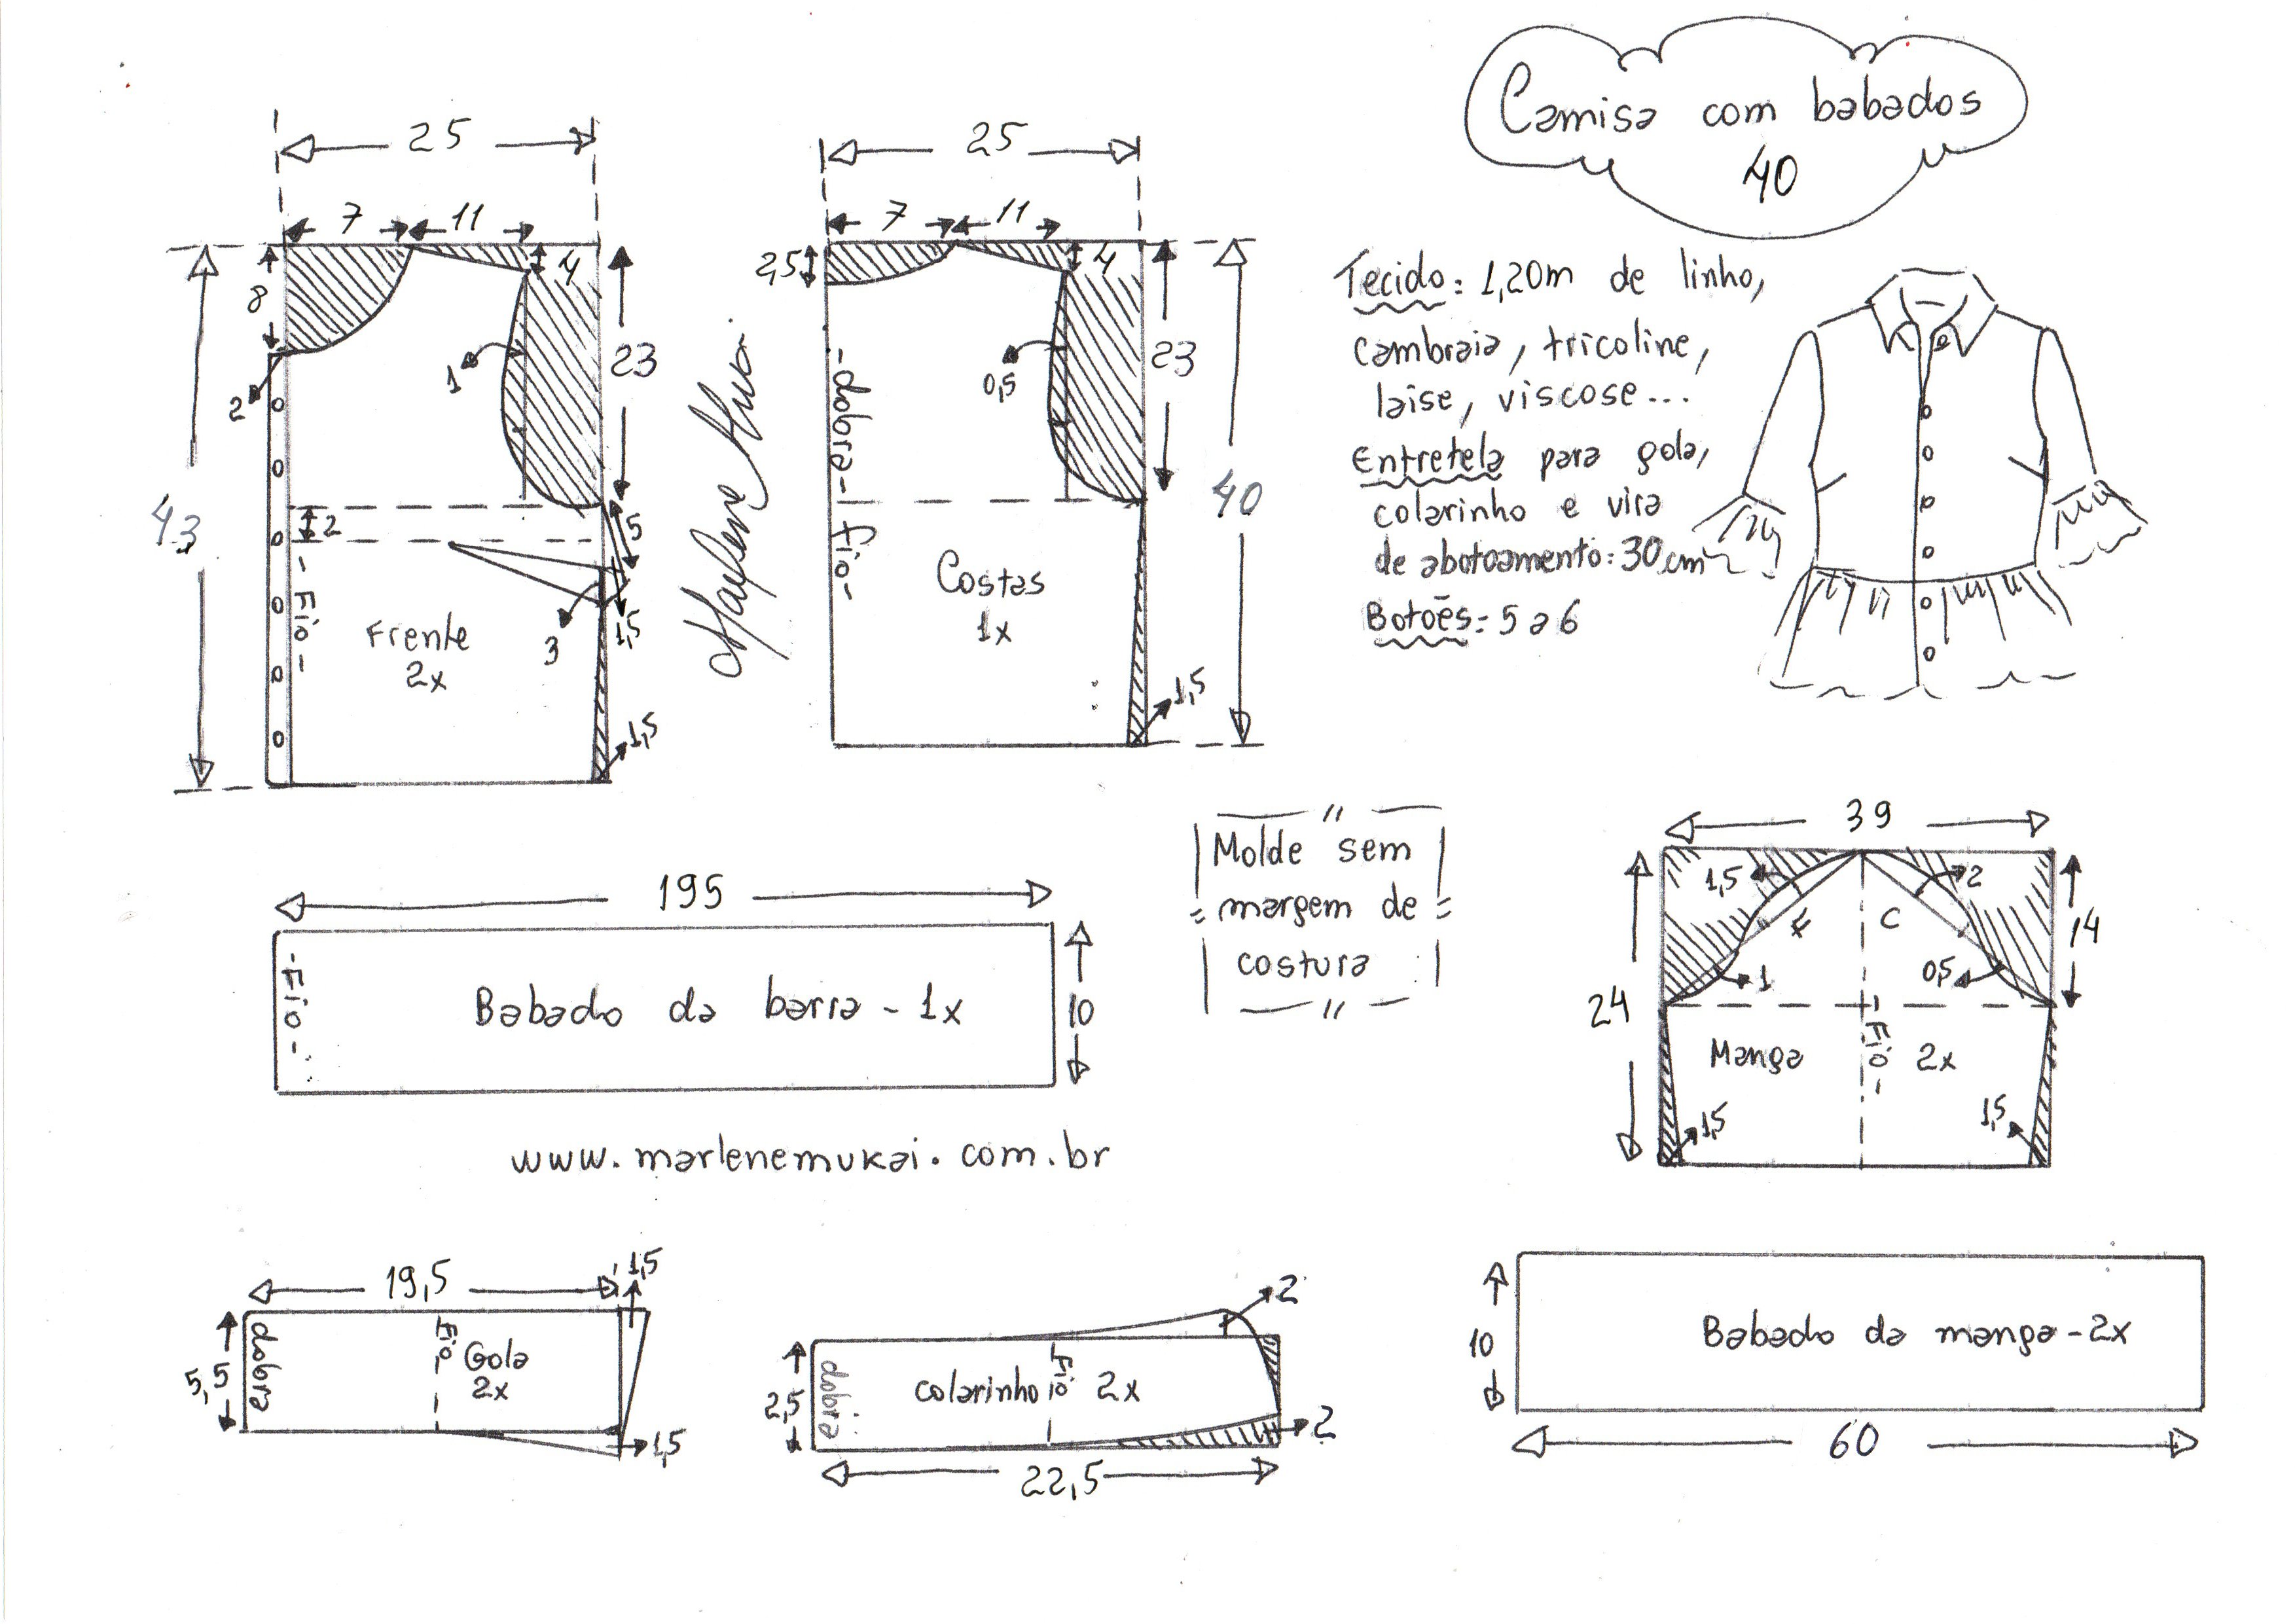 Camisa com babados
40
25
7
11
8
4
2
1
23
43
2
5
3
1,5
1,5
- Fio -
Frente
2x
25
7
11
2,5
4
0,5
23
40
- dobra -
Fio -
Costas
1x
1,5
Tecido: 1,20m de linho,
cambraia, tricoline,
laise, viscose...
Entretela para gola,
colarinho e vira
de abotoamento: 30cm
Botões: 5 a 6
195
- Fio -
Babado da barra - 1x
10
Molde sem
margem de
costura
39
1,5
2
F
C
14
24
1
0,5
Manga
Fio -
2x
1,5
1,5
www.marlenemukai.com.br
19,5
1,5
5,5
dobra
Fio
Gola
2x
1,5
2
2,5
dobra
colarinho
Fio
2x
2
22,5
10
Babado da manga - 2x
60